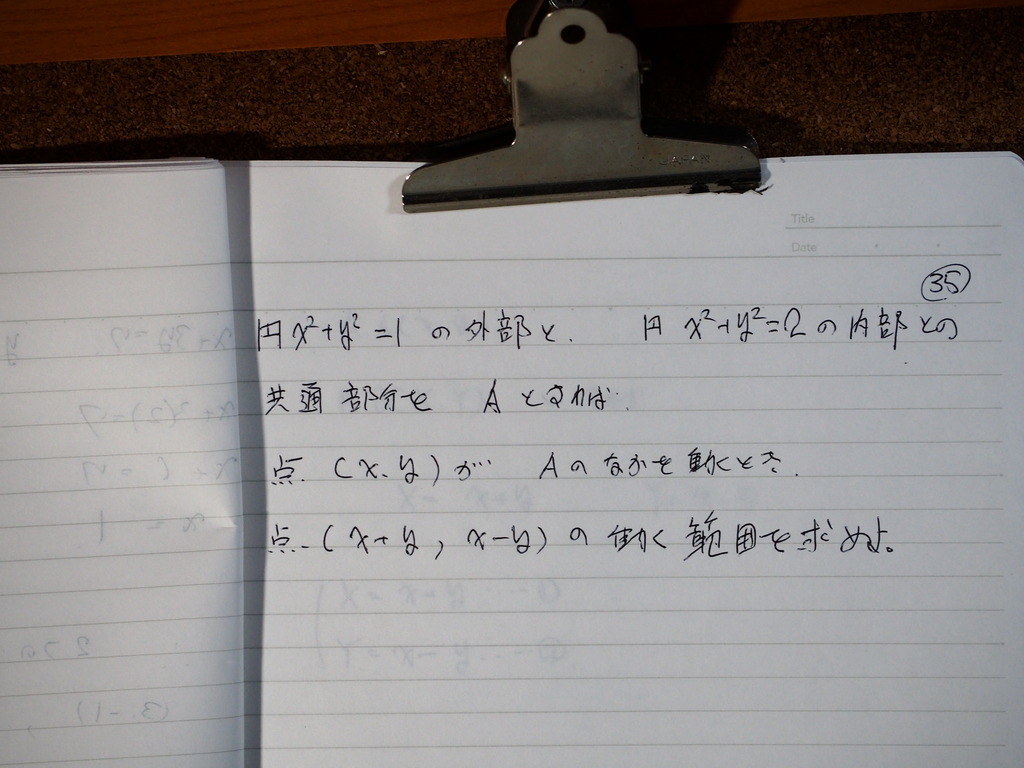 JAPAN
Title
Date
35
円 x²+y²=1 の外部と、 円 x²+y²=2 の内部との
共通部分を A とすれば、
点 (x、y) が A のなかを動くとき、
点 (x+y, x-y) の動く範囲を求めよ。